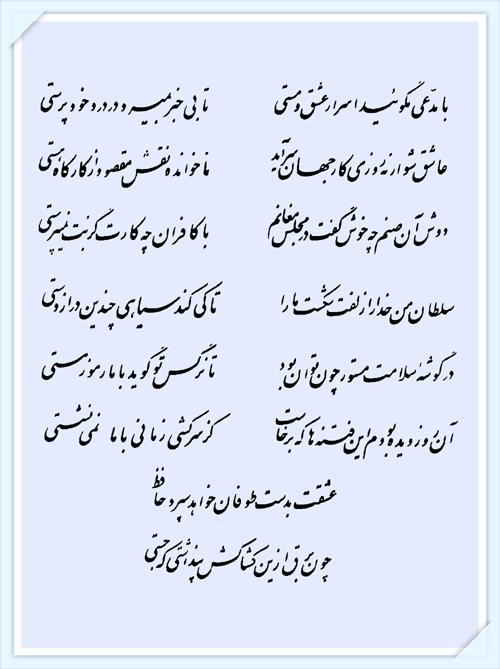 با مدعی مگوئید اسرار عشق و مستی تا بی خبر بمیرد در درد خودپرستی
عاشق شو ار نه روزی کار جهان سرآید ناخوانده نقش مقصود از کارگاه هستی
دوش آن صنم چه خوش گفت در مجلس مغانم با کافران چه کارت گر بت نمیپرستی
سلطان من خدا را زلفت شکست ما را تا کی کند سیاهی چندین درازدستی
در گوشه سلامت مستور چون توان بود تا نرگس تو گوید با ما رموز مستی
آن روز دیده بودم این فتنه ها که برخاست کز سرکشی زمانی با ما نمی نشستی
عشقت بدست طوفان خواهد سپرد حافظ
چون برق ازین کشاکش پنداشتی که جستی